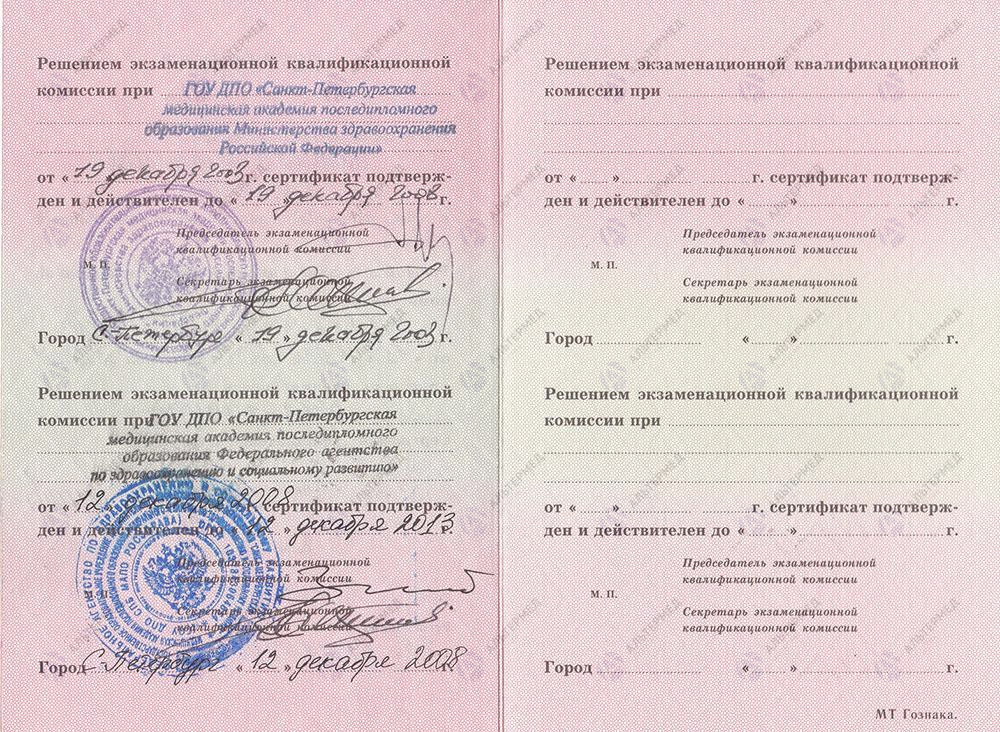 Решением экзаменационной квалификационной
комиссии при ГОУ ДПО «Санкт-Петербургская
медицинская академия последипломного
образования Министерства здравоохранения
Российской Федерации»
от « 19 декабря 2003 г. сертификат подтверж-
ден и действителен до « 19 » декабря 2008 г.
Председатель экзаменационной
квалификационной комиссии
М. П.
Секретарь экзаменационной
квалификационной комиссии
Город С.-Петербург « 19 » декабря 2003 г.
Решением экзаменационной квалификационной
комиссии при ГОУ ДПО «Санкт-Петербургская
медицинская академия последипломного
образования Федерального агентства
по здравоохранению и социальному развитию»
от « 12 » декабря 2008 г. сертификат подтверж-
ден и действителен до « 12 » декабря 2013 г.
Председатель экзаменационной
квалификационной комиссии
М. П.
Секретарь экзаменационной
квалификационной комиссии
Город С.-Петербург « 12 » декабря 2008
Решением экзаменационной квалификационной
комиссии при
от « » г. сертификат подтверж-
ден и действителен до « » г.
Председатель экзаменационной
квалификационной комиссии
М. П.
Секретарь экзаменационной
квалификационной комиссии
Город « » г.
Решением экзаменационной квалификационной
комиссии при
от « » г. сертификат подтверж-
ден и действителен до « » г.
Председатель экзаменационной
квалификационной комиссии
М. П.
Секретарь экзаменационной
квалификационной комиссии
Город « » г.
МТ Гознака.
АЛЬТЕРМЕД